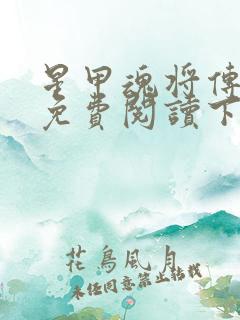 星甲魂将傳
免費閱讀下
花鳥風月
未经同意禁止转载